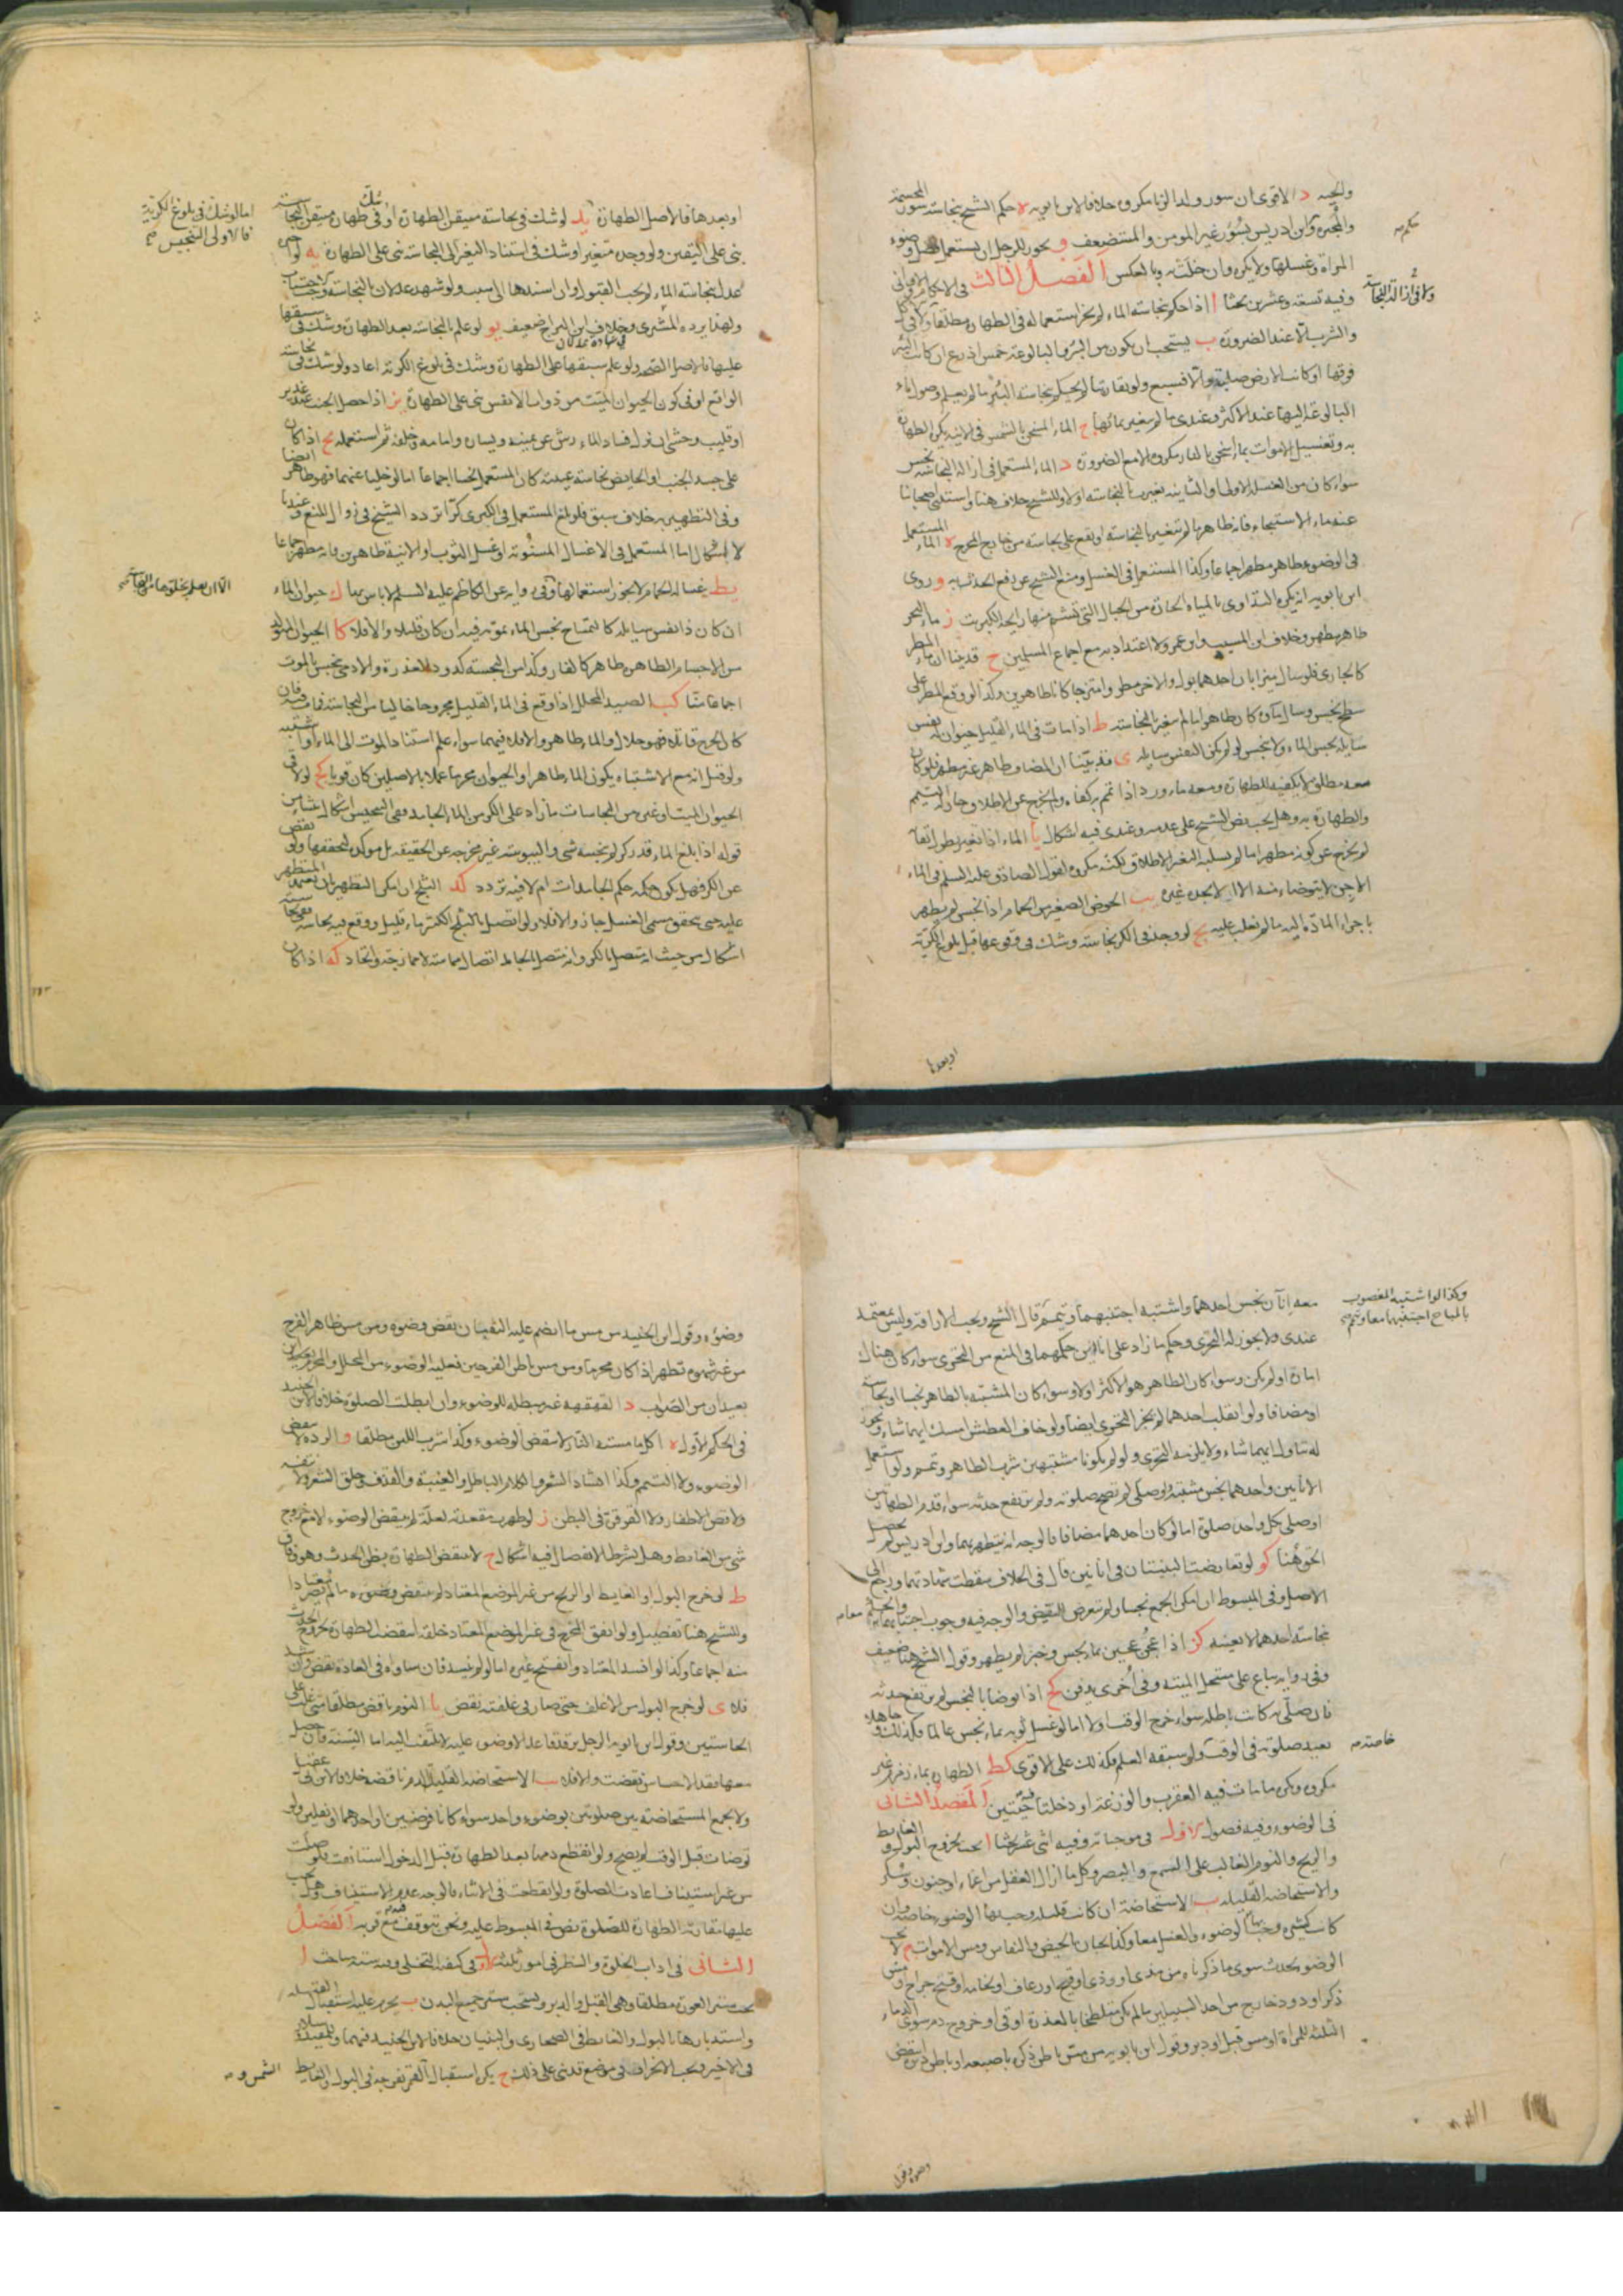 والحية د الاقوى ان سور ولد الزنا مكروه خلافا لابن بابويه ه حكم الشيخ بنجاسة سور المجسمة
والمجبرة وابن ادريس بسؤر غير المومن والمستضعف و يجوز للرجل ان يستعمل فضل وضوء
المراة وغسلها ولا يكره وان خلت به وبالعكس الفصل الثالث في الاحكام
وفيه تسعة وعشرين بحثا ا اذا حكم بنجاسة الماء لم يجز استعماله في الطهارة مطلقا ولا في الاكل
والشرب الا عند الضرورة ب يستحب ان يكون بين البئر والبالوعة خمس اذرع ان كانت البئر
فوقها او كانت الارض صلبة والا فسبع ولو تقاربتا لم يحكم بنجاسة البئر ما لم يعلم وصول ماء
البالوعة اليها عند الاكثر وعندي ما لم يتغير ماؤها ج الماء المسخن بالشمس في الانية يكره الطهارة
به وتغسيل الاموات بماء اسخن بالنار مكروه الا مع الضرورة د الماء المستعمل في ازالة النجاسة نجس
سواء كان من الغسلة الاولى او الثانية تغير بالنجاسة او لا وللشيخ خلاف هنا واستثنى اصحابنا
عنه ماء الاستنجاء فانه طاهر ما لم يتغير بالنجاسة او يقع على نجاسة من خارج المخرج ه الماء المستعمل
في الوضوء طاهر مطهر اجماعا وكذا المستعمل في الغسل ومنع الشيخ عن رفع الحدث به و روى
ابن بابويه انه يكره التداوي بالمياه الحارة من الجبال التي تشتم منها رايحة الكبريت ز ماء البحر
طاهر مطهر وخلاف ابن المسيب وابن عمر ولا اعتداد به مع اجماع المسلمين ح قد بينا ان ماء المطر
كالجاري فلو سال ميزابان احدهما بول والاخر مطر وامتزجا كانا طاهرين وكذا لو وقع المطر على
سطح نجس وسال ماؤه كان طاهرا ما لم يتغير بالنجاسة ط اذا مات في الماء القليل حيوان له نفس
سايلة نجس الماء ولا ينجس لو لم يكن النفس سايلة ي قد بينا ان المضاف طاهر غير مطهر فلو كان
معه مطلق لا يكفيه للطهارة ومعه ماء ورد اذا تمم به كفاه ولم يخرج عن الاطلاق جاز له التتميم
والطهارة به وهل يجب نص الشيخ على عدمه وعندي فيه اشكال يا الماء اذا تغير بطول لبثه
لم يخرج عن كونه مطهرا ما لم يسلبه التغير الاطلاق لكنه مكروه لقول الصادق عليه السلم في الماء
الاجن لا يتوضاء منه الا ان لا يجد غيره يب الحوض الصغير من الحمام اذا نجس لم يطهر
باجراء المادة اليه ما لم تغلب عليه يج لو وجد في الكر نجاسة وشك في وقوعها قبل بلوغ الكرية
او بعدها
او بعدها فالاصل الطهارة يد لو شك في نجاسة متيقن الطهارة او شك في طهارة متيقن النجاسة
بنى على اليقين ولو وجده متغيرا وشك في استناد التغير الى النجاسة بنى على الطهارة يه لو اخبره
عدل بنجاسة الماء لم يجب القبول وان اسندها الى سبب ولو شهد عدلان بالنجاسة
ولهذا يرده المشتري وخلاف ابن البراج ضعيف يو لو علم بالنجاسة بعد الطهارة وشك في سبقها
عليها فالاصل الصحة ولو علم سبقها على الطهارة وشك في بلوغ الكرية اعاد ولو شك في نجاسة
الواقع او في كون الحيوان الميت من ذوات الانفس بنى على الطهارة يز اذا حصل الجنب عند غدير
او قليب وخشي ان نزل فساد الماء رش عن يمينه ويساره وامامه وخلفه ثم استعمله يح اذا كان
على جسد الجنب او الحايض نجاسة عينية كان المستعمل نجسا اجماعا اما لو خليا عنهما فهو طاهر ايضا
وفي التطهير به خلاف سبق فلو بلغ المستعمل في الكبرى كرا تردد الشيخ في زوال المنع وعندنا
لا اشكال اما المستعمل في الاغسال المسنونة او غسل الثوب او الانية طاهرين فانه مطهر اجماعا
يط غسالة الحمام لا يجوز استعمالها وفي رواية عن الكاظم عليه السلم لا باس بها ك حيوان الماء
ان كان ذا نفس سايلة كالتمساح نجس الماء بموته فيه ان كان قليلا والا فلا كا الحيوان المتولد
من الاجسام الطاهرة طاهر كالفار وكذا من النجسة كدود العذرة والادمي نجس بالموت
اجماعا منا كب الصيد المحلل اذا وقع في الماء القليل مجروحا خاليا من النجاسة فمات فيه فان
كان الجرح قاتلا فهو حلال والماء طاهر والا فلا فيهما سواء علم استناد الموت الى الماء او اشتبه
ولو قيل انه مع الاشتباه يكون الماء طاهرا والحيوان محرما عملا بالاصلين كان قويا كج لو لاقى
الحيوان الميت او غيره من النجاسات ما زاد على الكر من الماء الجامد ففي التنجيس اشكال ينشا من
قوله اذا بلغ الماء قدر كر لم ينجسه شي واليبوسة غير مخرجة عن الحقيقة بل موكدة لتحققها ولو نقص
عن الكر فهل يكون حكمه حكم الجامدات ام لا فيه تردد كد الثلج ان امكن التطهير بان يعتمد المتطهر
عليه حتى يتحقق مسمى الغسل جاز والا فلا ولو اتصل بالثلج الكثير ماء قليل ووقع فيه نجاسة
اشكال من حيث انه متصل بالكر وانه متصل بالجامد اتصال مماسة لا ممازجة واتحاد كه اذا كان
اما لو شك في بلوغ الكرية
فالاولى التنجيس صح
معه اناآن نجس احدهما واشتبه اجتنبهما وتيمم قال الشيخ ويجب الاراقة وليس بمعتمد
عندي ولا يجوز له التحري وحكم ما زاد على انائين حكمهما في المنع من التحري سواء كان هناك
امارة او لم يكن وسواء كان الطاهر هو الاكثر او لا وسواء كان المشتبه بالطاهر نجسا او نجاسة
او مضافا ولو انقلب احدهما لم يجز التحري ايضا ولو خاف العطش امسك ايهما شاء ويجوز
له تناول ايهما شاء ولا يلزمه التحري ولو لم يكونا مشتبهين شرب الطاهر وتيمم ولو استعمل
الانائين واحدهما نجس مشتبه وصلى لم تصح صلوته ولم يرتفع حدثه سواء قدم الطهارتين
او صلى بكل واحدة صلوة اما لو كان احدهما مضافا فالوجه انه يتطهر بهما وابن ادريس لم يحصل
الحق هنا كو لو تعارضت البينتان في انائين قال في الخلاف سقطت شهادتهما ورجع الى
الاصل وفي المبسوط ان امكن الجمع نجسا ولم يتعرض للنقيض والوجه فيه وجوب اجتنابهما
نجاسة احدهما لا بعينه كز اذا عجن عجين بماء نجس وخبز لم يطهر وقول الشيخ هنا ضعيف
وفي رواية يباع على مستحل الميتة وفي اخرى يدفن كح اذا توضا بالنجس لم يرتفع حدثه
فان صلى به كانت باطلة سواء خرج الوقت او لا اما لو غسل ثوبه بماء نجس عالما فكذلك وجاهلا
يعيد صلوته في الوقت ولو سبقه العلم فكذلك على الاقوى كط الطهارة بماء زمزم غير
مكروه ويكره ما مات فيه العقرب والوزغة او دخلتا حيتين المقصد الثاني
في الوضوء وفيه فصول الاول في موجباته وفيه اثنى عشر بحثا ا يجب بخروج البول والغايط
والريح والنوم الغالب على السمع والبصر وكل ما ازال العقل من اغماء او جنون وسكر
والاستحاضة القليلة ب الاستحاضة ان كانت قليلة وجب بها الوضوء خاصة وان
كانت كثيرة وجب بها الوضوء والغسل معا وكذا يجبان بالحيض والنفاس ومس الاموات ج لا يجب
الوضوء بحدث سوى ما ذكرناه من مذي او وذي او قيح او رعاف او نخامة او فتح جراح او مس
ذكر او دود خارج من احد السبيلين ما لم يكن متلطخا بالعذرة او قي او خروج دم سوى الدماء
الثلثة للمراة او مس قبل او دبر وقول ابن بابويه من مس باطن ذكره باصبعه او باطن دبره انتقض
وضوءه وقول
وكذا لو اشتبه المغصوب
بالمباح اجتنبهما معا وتيمم صح
خاصة صح
وضوءه وقول ابن الجنيد من مس ما انضم عليه الثقبتان نقض وضوءه ومن مس ظاهر الفرج
من غيره بشهوة تطهر اذا كان محرما ومن مس باطن الفرجين فعليه الوضوء من المحلل والمحرم بعيدين
بعيدان من الصواب د القهقهة غير مبطلة للوضوء وان ابطلت الصلوة خلافا لابن الجنيد
في الحكم الاول ه اكل ما مسته النار لا ينقض الوضوء وكذا شرب اللبن مطلقا و الردة لا تنقض
الوضوء ولا التيمم وكذا انشاد الشعر والكلام الباطل والغيبة والقذف وحلق الشعر ولا نتفه
ولا قص الاظفار ولا القرقرة في البطن ز لو ظهرت مقعدته لعلة لم ينقض الوضوء الا مع خروج
شي من الغايط وهل يشترط الانفصال فيه اشكال ح لا ينقض الطهارة بظن الحدث وهو وفاق
ط لو خرج البول او الغايط او الريح من غير الموضع المعتاد لم ينقض وضوءه ما لم يصر معتادا
وللشيخ هنا تفصيل ولو اتفق المخرج في غير الموضع المعتاد خلقة انتقض الطهارة بخروج الحدث
منه اجماعا وكذا لو انسد المعتاد وانفتح غيره اما لو لم ينسد فان ساواه في العادة نقض والا
فلا ي لو خرج البول من الاغلف حتى صار في غلفته نقض يا النوم ناقض مطلقا متى غلب على
الحاستين وقول ابن بابويه الرجل يرقد قاعدا لا وضوء عليه لا يلتفت اليه اما السنة فان حصل
معها فقد الاحساس نقضت والا فلا يب الاستحاضة القليلة الدم ناقضة خلافا لابن ابي عقيل
ولا يجمع المستحاضة بين صلوتين بوضوء واحد سواء كانا فرضين او احدهما او نفلين ولو
توضات قبل الوقت لم يصح ولو انقطع دمها بعد الطهارة قبل الدخول استانفت فلو صلت
من غير استيناف اعادت الصلوة ولو انقطعت في الاثناء فالوجه عدم الاستيناف وهل يجب
عليها مقارنة الطهارة للصلوة نص في المبسوط عليه ونحن نتوقف فيه مع قربه الفصل
الثاني في اداب الخلوة والنظر في امور ثلثة الاول في كيفية التخلي وفيه ستة مباحث ا
يجب ستر العورة مطلقا وهي القبل والدبر ويستحب ستر جميع البدن ب يحرم عليه استقبال القبلة
واستدبارها بالبول والغايط في الصحاري والبنيان خلافا لابن الجنيد فيهما وللمفيد وسلار
في الاخير ويجب الانحراف في موضع قد بني على ذلك ج يكره استقبال القمر بفرجه في البول والغايط
الشمس و صح